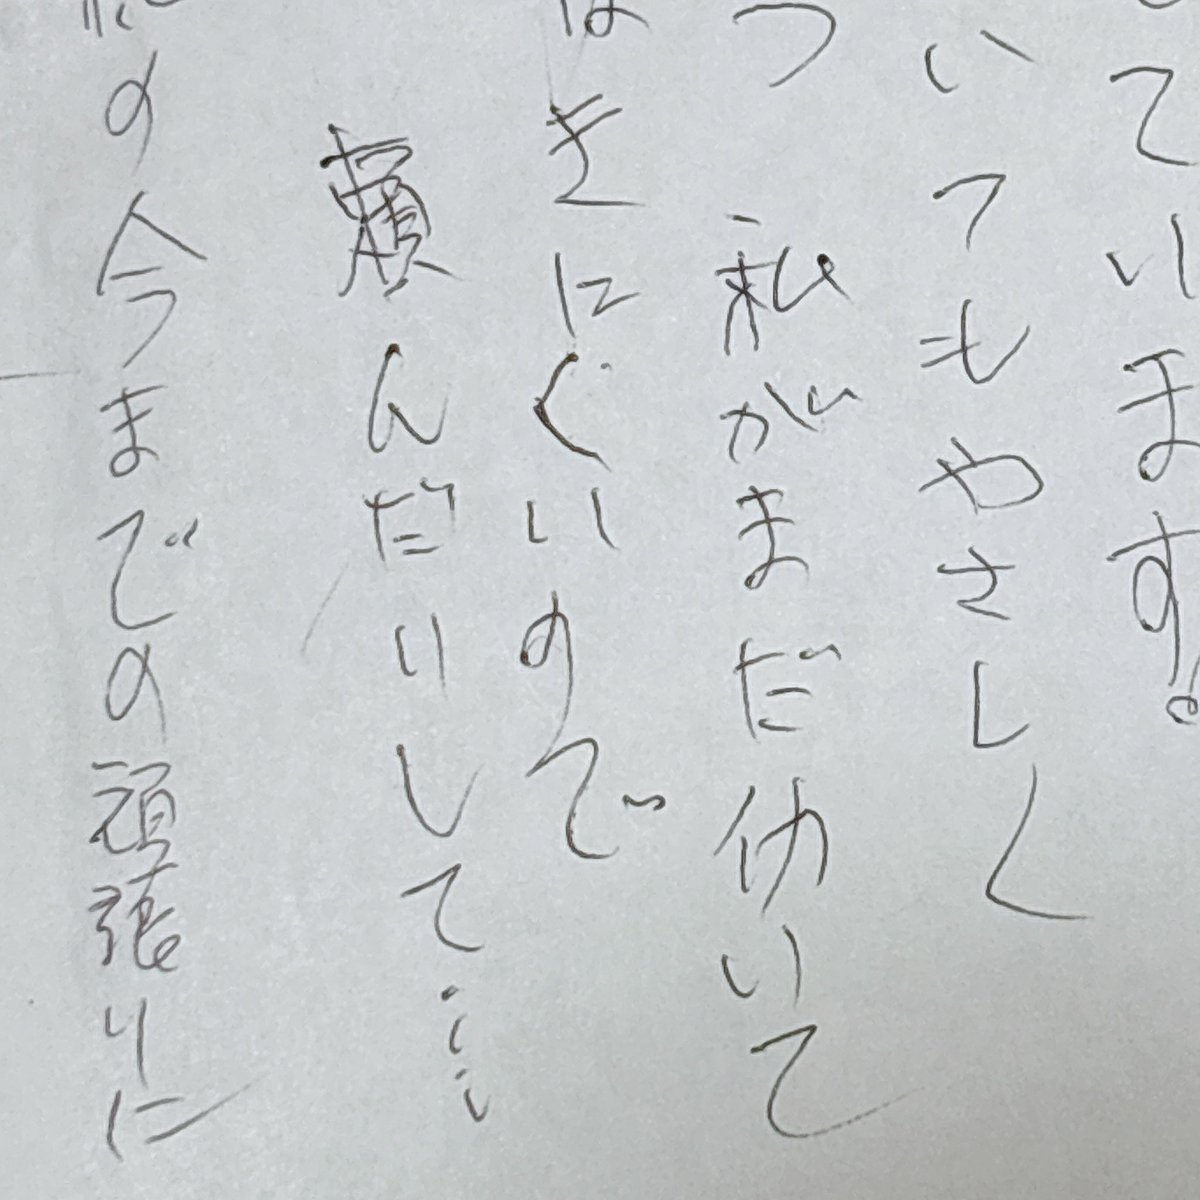 ています。
いてもやさしく
つ 私がまだ働いて
はきにくいので
頼んだりして…
の今までの頑張りに